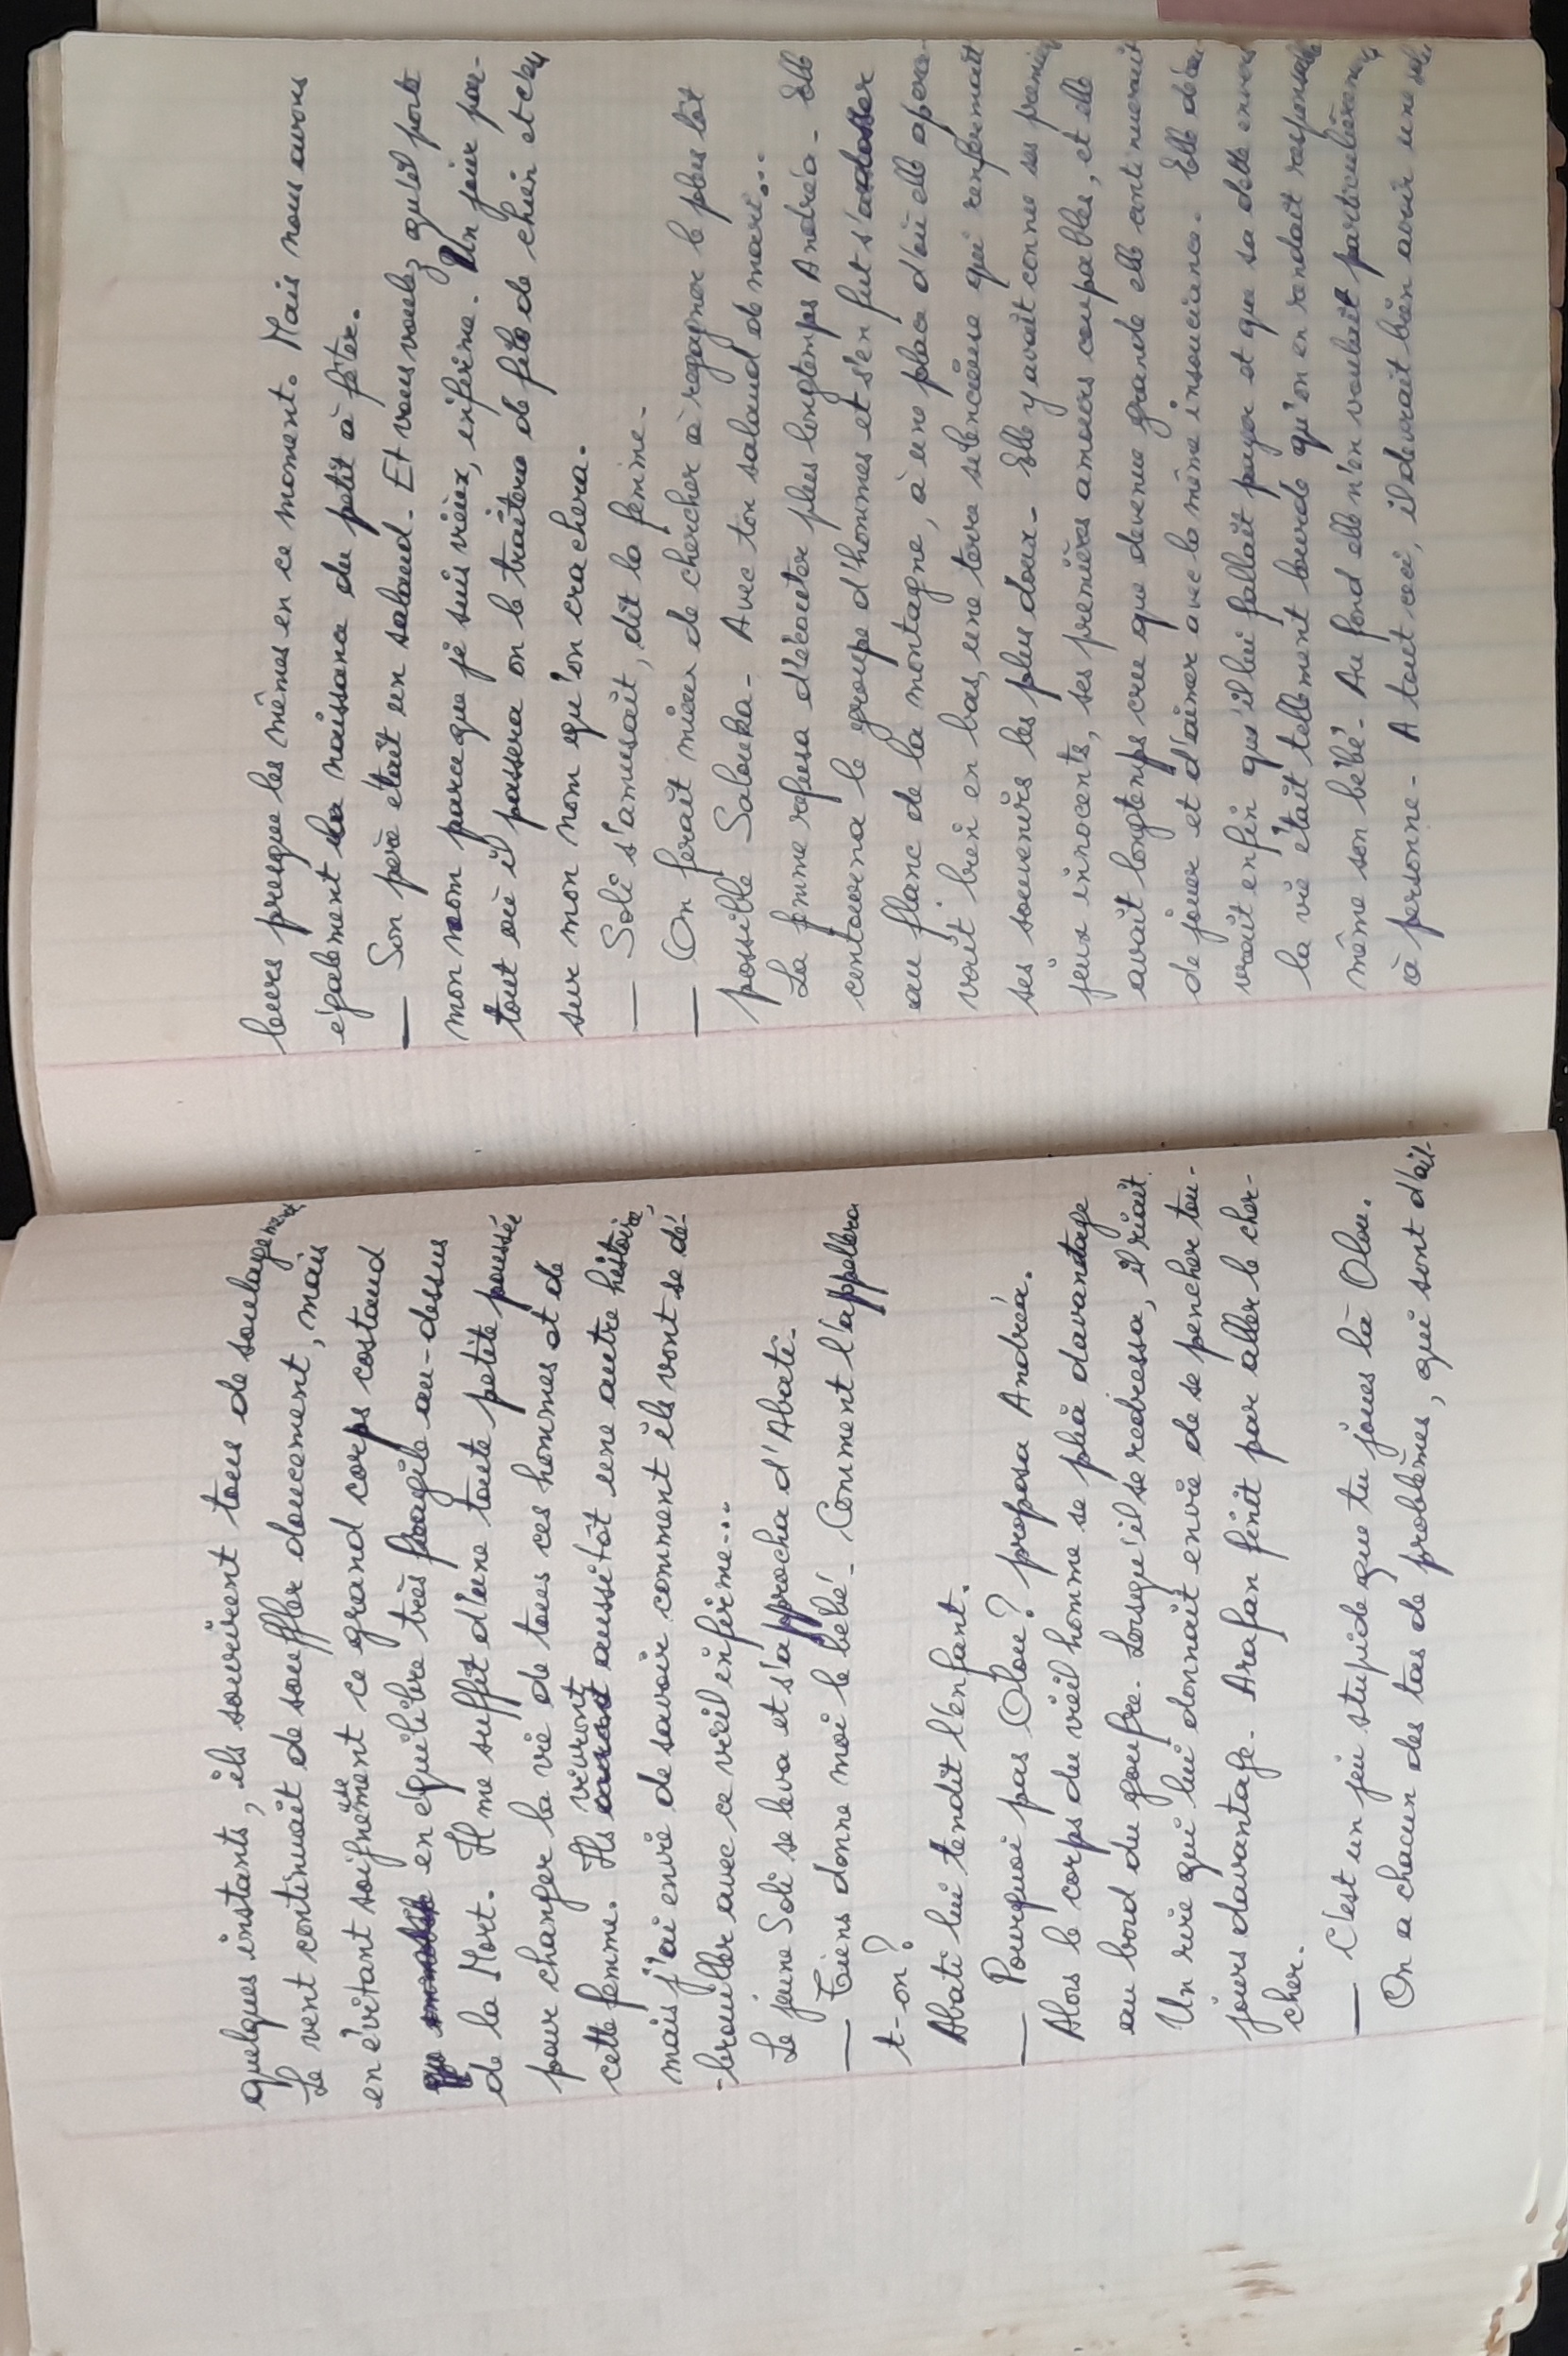 quelques instants, ils sourirent tous de soulagement
Le vent continuait de souffler doucement, mais
en évitant soigneusement ce grand corps costaud
en équilibre très fragile au-dessus
de la Mort. Il me suffit d'une toute petite poussée
pour changer la vie de tous ces hommes et de
cette femme. Ils vivront aussitôt une autre histoire,
mais j'ai envie de savoir comment ils vont se dé-
-brouiller avec ce vieil infirme...
Le jeune Soli se leva et s'approcha d'Abati.
— Tiens donne moi le bébé. Comment l'appellera
t-on?
Abati lui tendit l'enfant.
— Pourquoi pas Olou? proposa Andréa.
Alors le corps du vieil homme se plia davantage
au bord du gouffre. Lorsqu'il se redressa, il riait.
Un rire qui lui donnait envie de se pencher tou-
jours davantage. Arafan finit par aller le cher-
cher.
— C'est un jeu stupide que tu joues là Olou.
On a chacun des tas de problèmes, qui sont d'ail-
leurs presque les mêmes en ce moment. Mais nous avons
également la naissance du petit à fêter.
— Son père était un salaud. Et vous voulez qu'il porte
mon nom parce que je suis vieux, infirme. Un jour par-
tout où il passera on le traitera de fils de chien et c'est
sur mon nom qu'on crachera.
— Soli s'amusait, dit la femme.
— On ferait mieux de chercher à regagner le plus tôt
possible Salouka. Avec ton salaud de mari...
La femme refusa d'écouter plus longtemps Andréa. Elle
contourna le groupe d'hommes et s'en fut s'adosser
au flanc de la montagne, à une place d'où elle aperce-
vait bien en bas, une terre silencieuse qui renfermait
ses souvenirs les plus doux. Elle y avait connu ses premiers
jeux innocents, ses premières amours coupables, et elle
avait longtemps cru que devenue grande elle continuerait
de jouer et d'aimer avec la même insouciance. Elle décou-
vrait enfin qu'il lui fallait payer et que sa dette envers
la vie était tellement lourde qu'on en rendait responsable
même son bébé. Au fond elle n'en voulait particulièrement
à personne. A tout ceci, il devrait bien avoir une